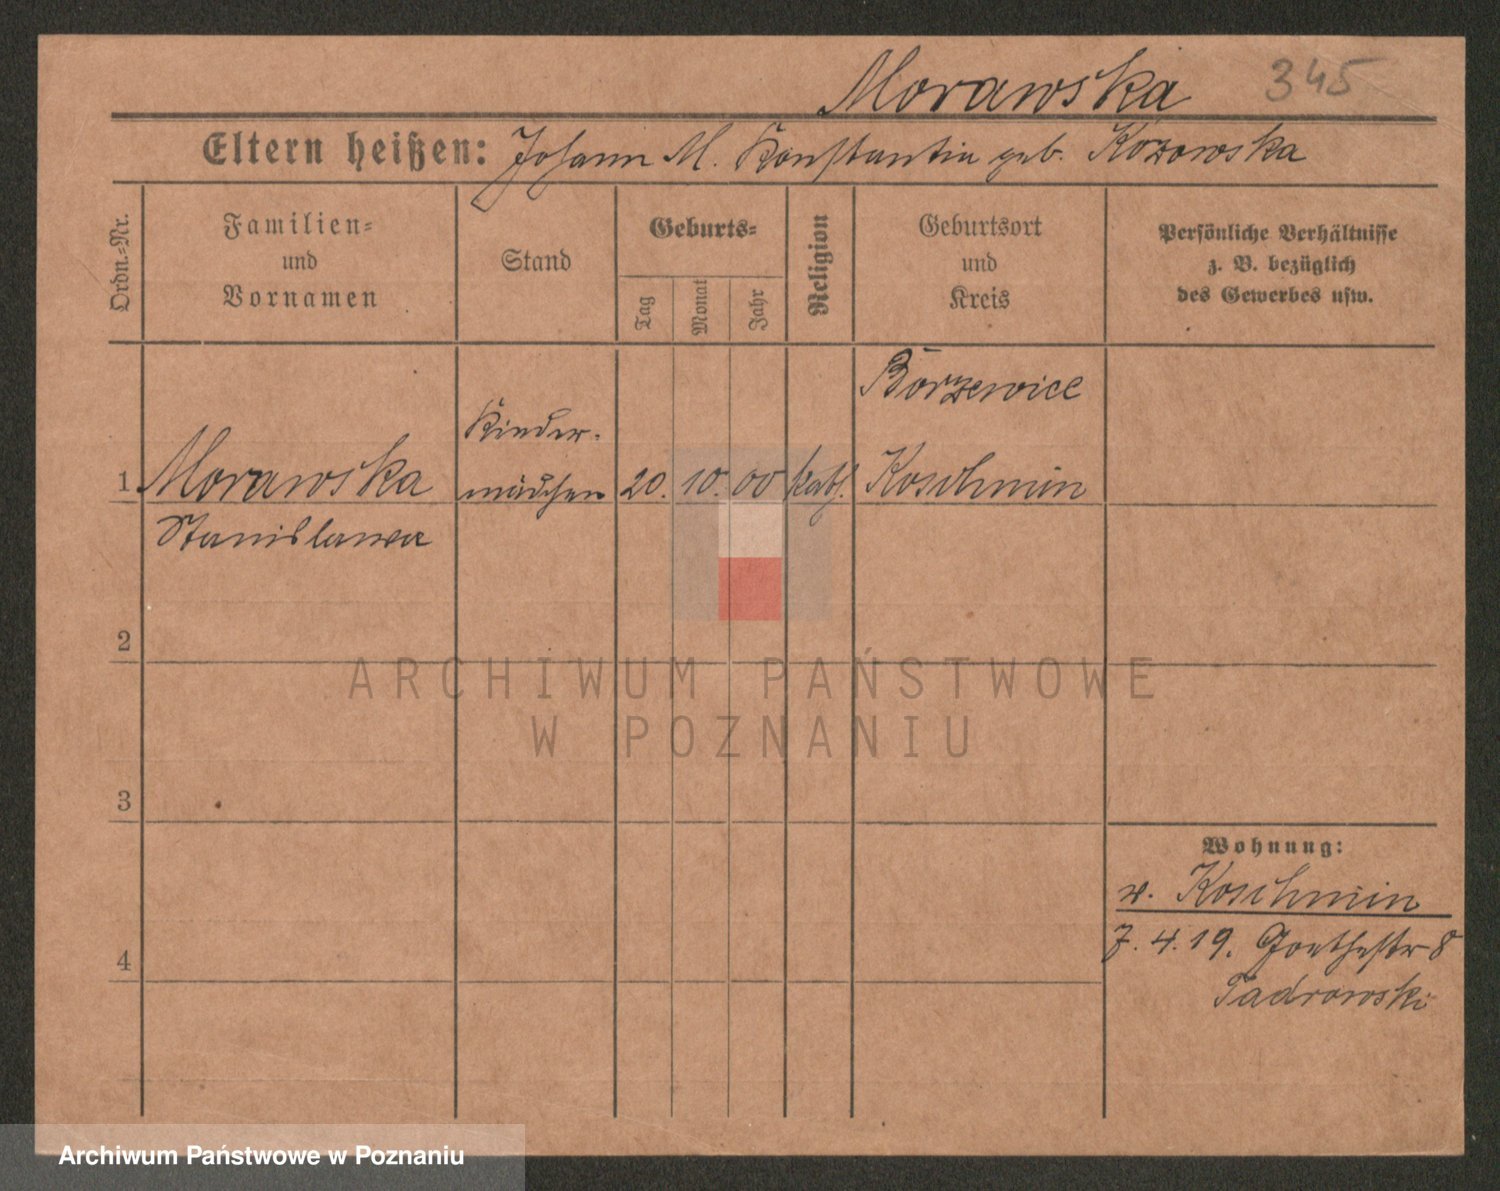 Morawska 345
Eltern heißen: Johann M. Konstantia geb. Kozowska
Ordn.=Nr.
Familien=
und
Vornamen
Stand
Geburts=
Tag
Monat
Jahr
Religion
Geburtsort
und
Kreis
Persönliche Verhältnisse
z. B. bezüglich
des Gewerbes usw.
Borzewice
Kinder-
1 Morawska mädchen 20. 10. 00 kath. Koschmin
Stanislawa
2
3
4
Wohnung:
v. Koschmin
7. 4. 19. Goethestr 8
Tadrowski
ARCHIWUM PAŃSTWOWE
W POZNANIU
Archiwum Państwowe w Poznaniu